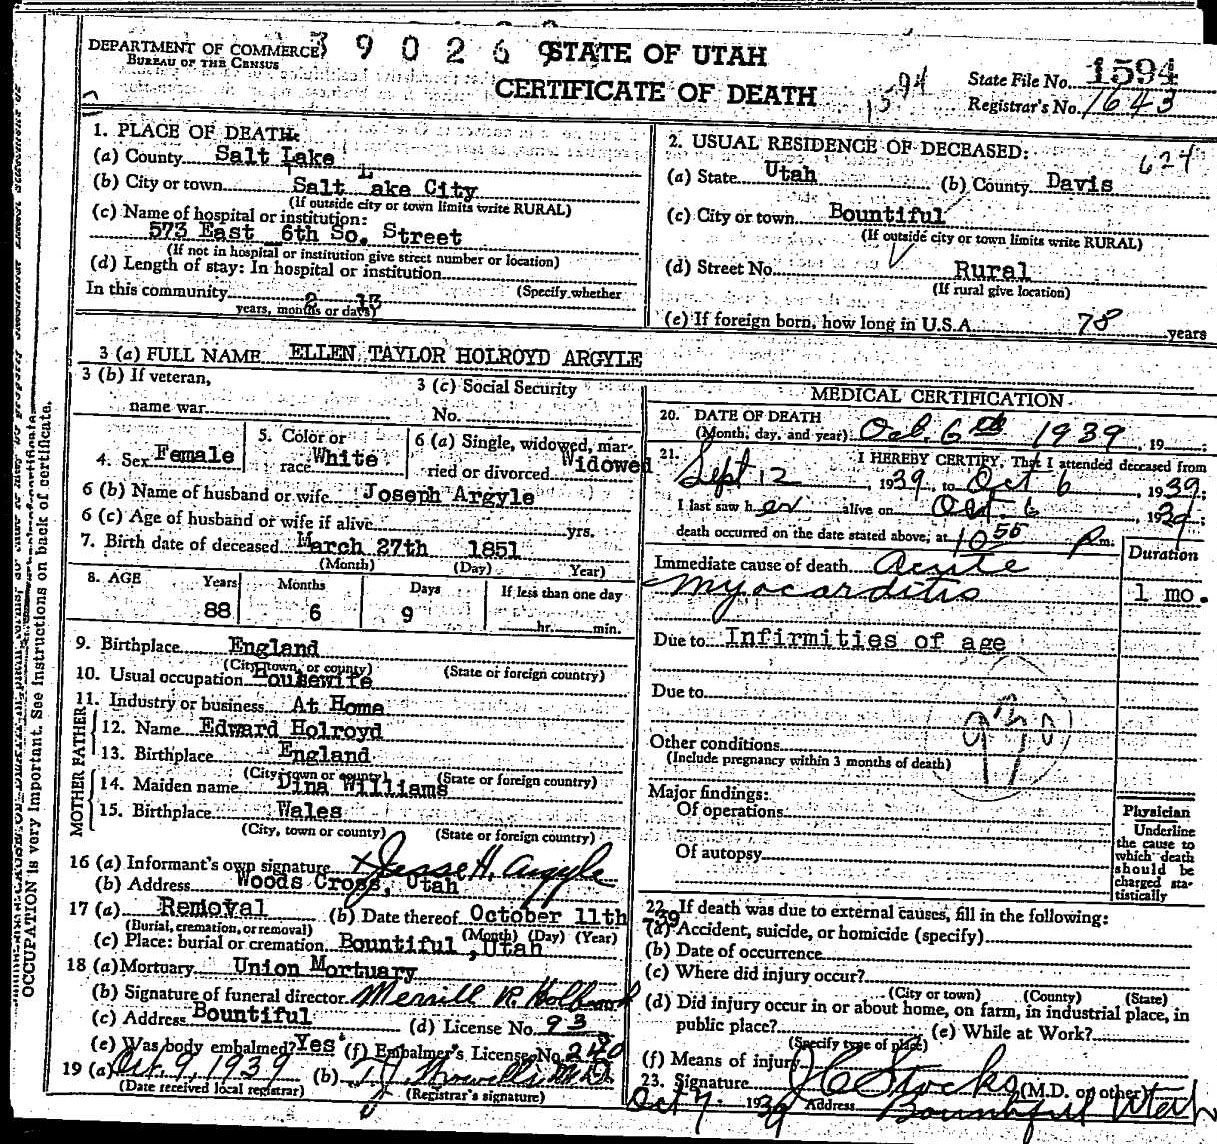 39026 9
DEPARTMENT OF COMMERCE
BUREAU OF THE CENSUS
STATE OF UTAH
CERTIFICATE OF DEATH
1594
State File No. 1594
Registrar's No. 1643
1. PLACE OF DEATH:
(a) County Salt Lake
(b) City or town Salt Lake City
(If outside city or town limits write RURAL)
(c) Name of hospital or institution:
573 East 6th So. Street
(If not in hospital or institution give street number or location)
(d) Length of stay: In hospital or institution
(Specify whether
In this community 2 13
years, months or days)
2. USUAL RESIDENCE OF DECEASED:
624
(a) State Utah (b) County Davis
(c) City or town Bountiful
(If outside city or town limits write RURAL)
(d) Street No. Rural
(If rural give location)
(e) If foreign born, how long in U.S.A. 78 years
3 (a) FULL NAME ELLEN TAYLOR HOLROYD ARGYLE
3 (b) If veteran, name war
3 (c) Social Security No.
4. Sex Female
5. Color or race White
6 (a) Single, widowed, married or divorced Widowed
6 (b) Name of husband or wife Joseph Argyle
6 (c) Age of husband or wife if alive yrs.
7. Birth date of deceased March 27th 1851
(Month) (Day) Year)
8. AGE Years Months Days If less than one day
88 6 9 hr. min.
9. Birthplace England
(City, town, or county) (State or foreign country)
10. Usual occupation Housewife
11. Industry or business At Home
FATHER
12. Name Edward Holroyd
13. Birthplace England
(City, town or county) (State or foreign country)
MOTHER
14. Maiden name Dina Williams
15. Birthplace Wales
(City, town or county) (State or foreign country)
16 (a) Informant's own signature x Jesse H. Argyle
(b) Address Woods Cross, Utah
17 (a) Removal (b) Date thereof October 11th 739
(Burial, cremation, or removal) (Month) (Day) (Year)
(c) Place: burial or cremation Bountiful, Utah
18 (a) Mortuary Union Mortuary
(b) Signature of funeral director Merrill R. Holbrook
(c) Address Bountiful (d) License No. 93
(e) Was body embalmed? Yes (f) Embalmer's License No.
19 (a) Oct. 9, 1939 (b)
(Date received local registrar) (Registrar's signature)
MEDICAL CERTIFICATION
20. DATE OF DEATH
(Month, day, and year): Oct. 6th 1939, 19
21. I HEREBY CERTIFY, That I attended deceased from
Sept 12, 1939, to Oct 6, 1939;
I last saw her alive on Oct. 6, 1939;
death occurred on the date stated above, at 10 55 P.m.
Duration
Immediate cause of death Acute
myocarditis 1 mo.
Due to Infirmities of age
Due to
Other conditions
(Include pregnancy within 3 months of death)
Major findings:
Of operations
Of autopsy
Physician
Underline
the cause to
which death
should be
charged sta-
tistically
22. If death was due to external causes, fill in the following:
(a) Accident, suicide, or homicide (specify)
(b) Date of occurrence
(c) Where did injury occur?
(City or town) (County) (State)
(d) Did injury occur in or about home, on farm, in industrial place, in
public place? (e) While at Work?
(Specify type of place)
(f) Means of injury
23. Signature J C Stocks (M.D. or other)
Oct 7. 1939 Address Bountiful Utah
OCCUPATION is very important. See instructions on back of certificate.